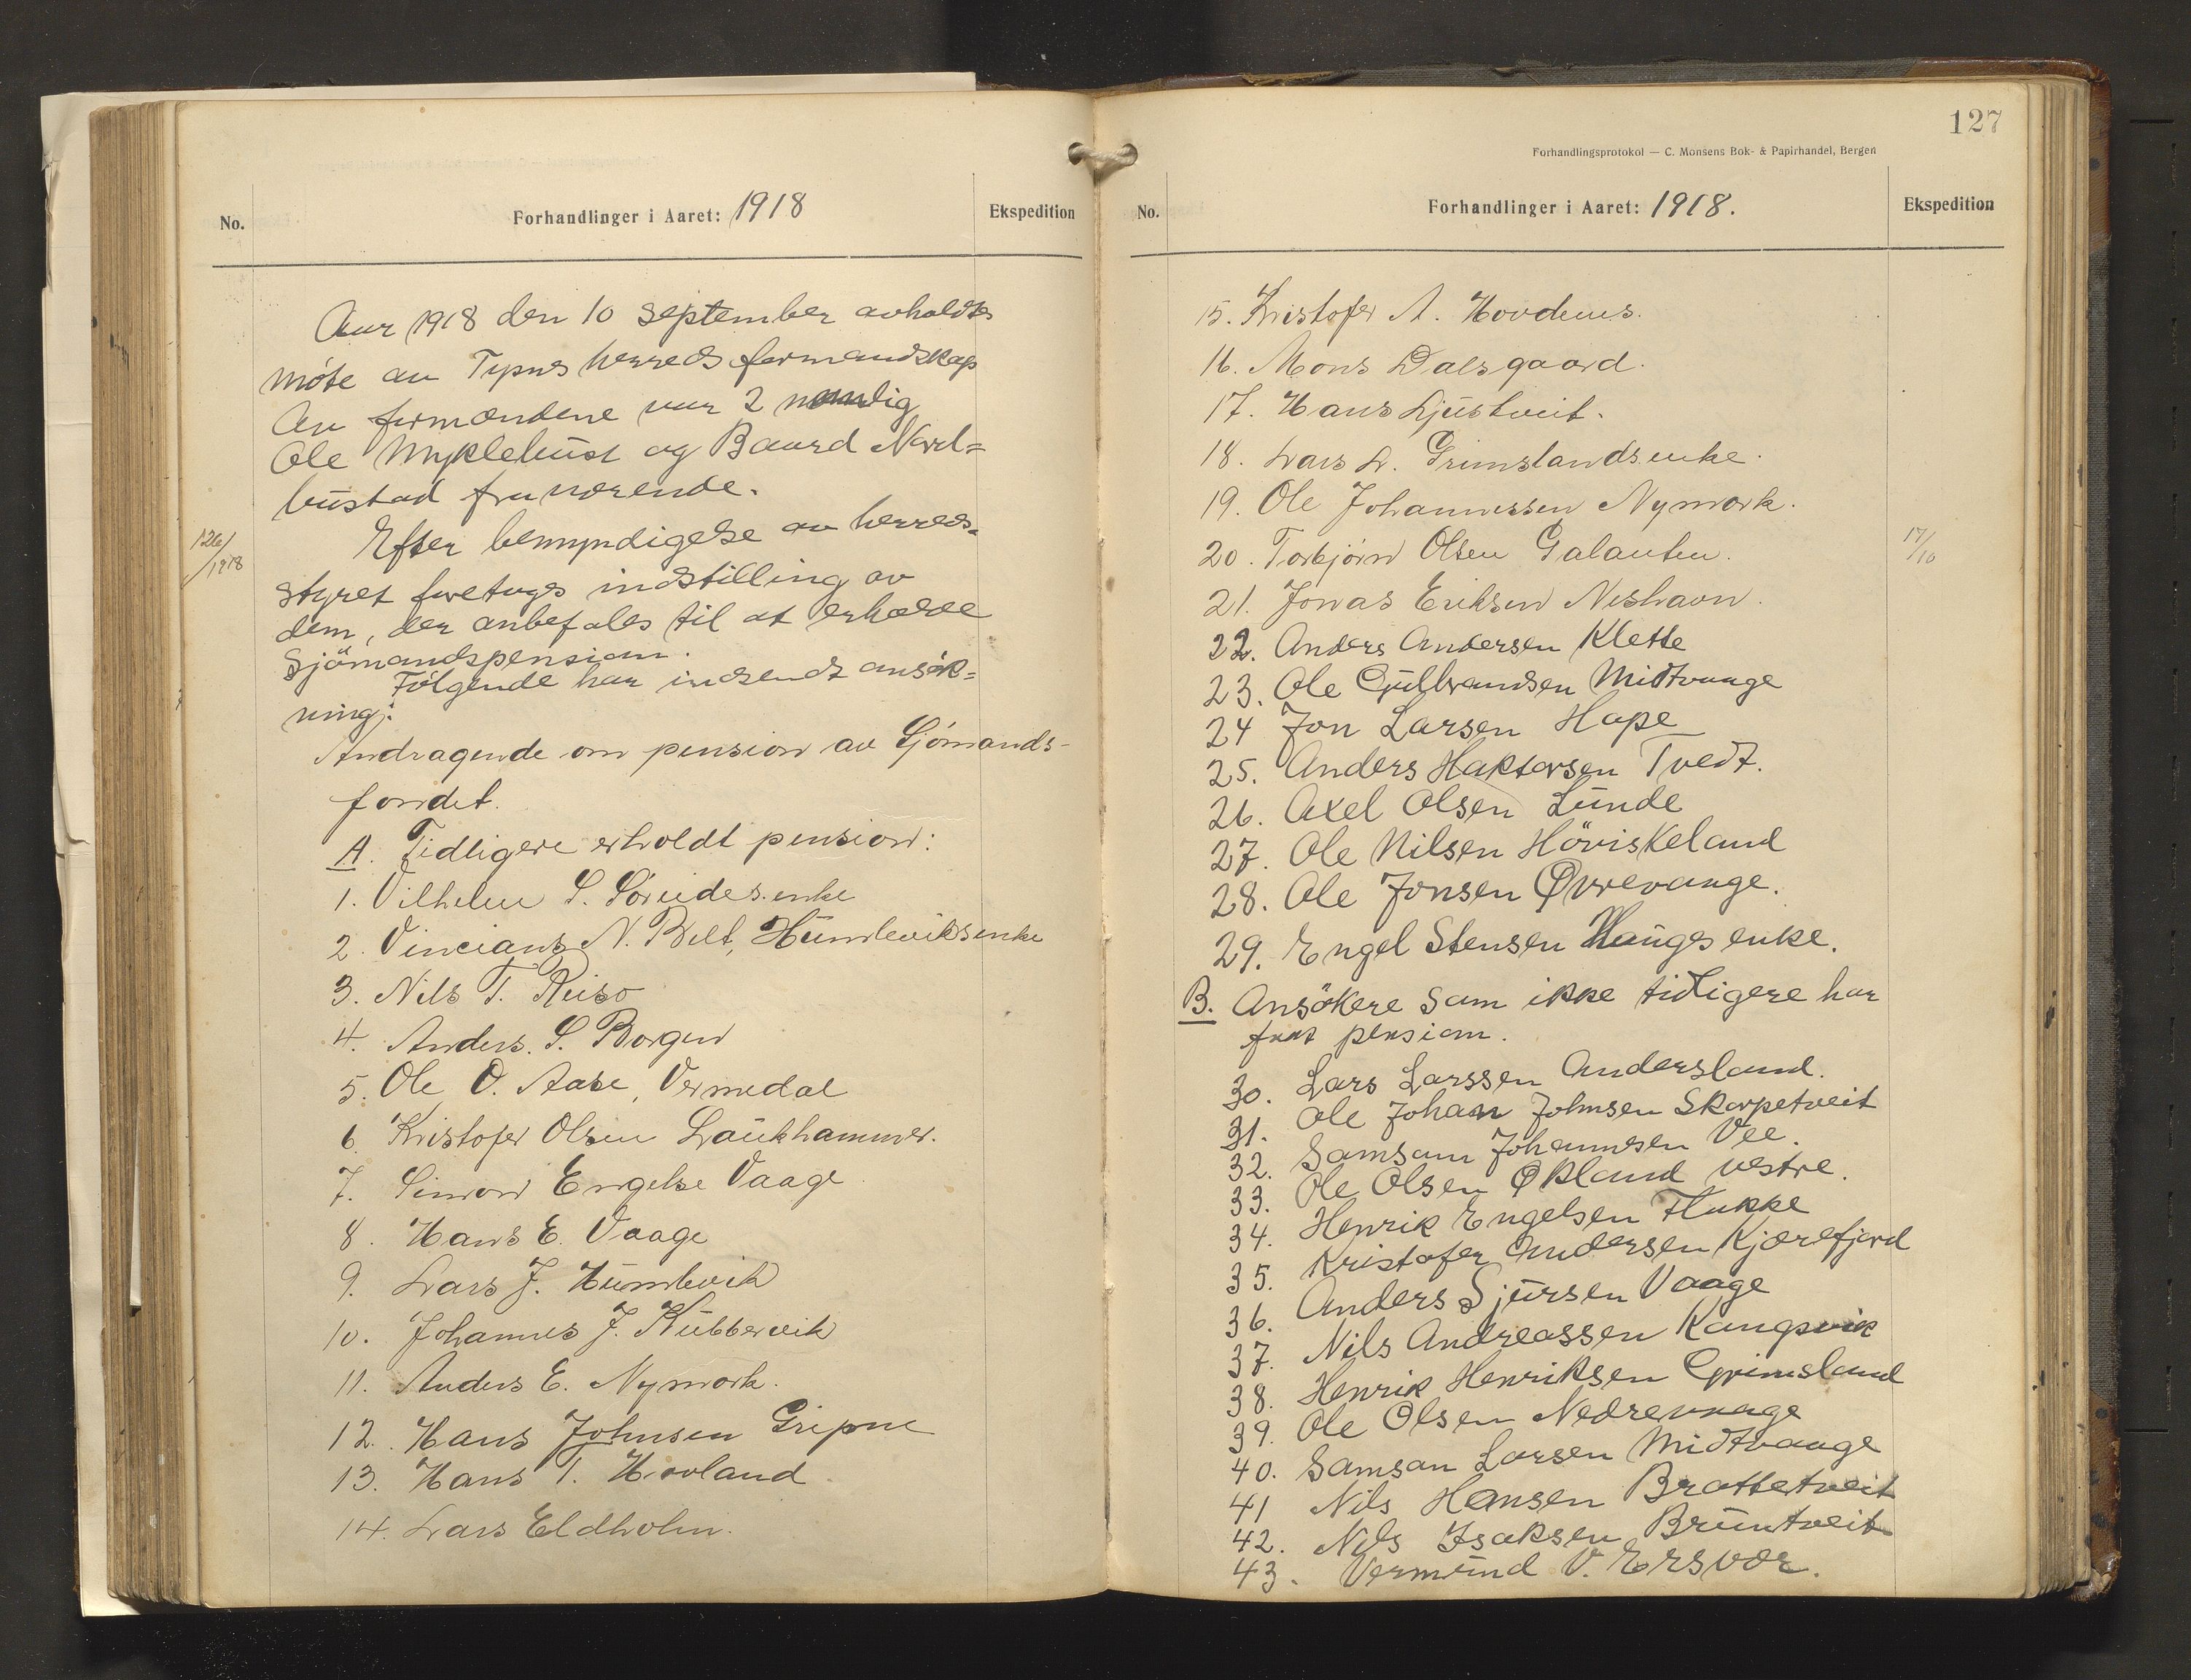 No.
Forhandlinger i Aaret: 1918
Ekspedition
Aar 1918 den 10 september avholdtes
møte av Tysnes herredsformandskap
Av formændene var 2 nemlig
Ole Myklebust og Baard Nord=
bustad fraværende.
126/1918
Efter bemyndigelse av herreds=
styret foretages indstilling av
dem, der anbefales til at erholde
Sjömandspension.
Følgende har indsendt ansøk=
ning:
Andragende om pension av Sjømands-
fondet.
A. Tidligere erholdt pension:
1. Vilhelm S. Søreides enke
2. Vincians N. Belt, Humleviks enke
3. Nils T. Reiso
4. Anders S. Borgen
5. Ole O. Aase, Vermedal
6. Kristofer Olsen Laukhammer.
7. Simon Engelse Vaage
8. Hans E. Vaage
9. Lars J. Humlevik
10. Johannes J. Kubbervik
11. Anders E. Nymark.
12. Hans Johnsen Gripne
13. Hans T. Hovland
14. Lars Eldholm.
127
Forhandlingsprotokol — C. Monsens Bok- & Papirhandel, Bergen
No.
Forhandlinger i Aaret: 1918.
Ekspedition
15. Kristofer A. Hovdenes.
16. Mons Dalsgaard.
17. Hans Ljustveit.
18. Lars L. Grimslands enke.
19. Ole Johannessen Nymark.
20. Torbjørn Olsen Galauten.
17/10
21. Jonas Eriksen Neshavn.
22. Anders Andersen Klette
23. Ole Gulbrandsen Midtvaage
24 Jon Larsen Hope
25. Anders Haktorsen Tvedt.
26. Axel Olsen Lunde
27. Ole Nilsen Höviskeland
28. Ole Jonsen Øvrevaage.
29. Engel Stensen Hauges enke.
B. Ansökere som ikke tidligere har
faat pension.
30. Lars Larssen Andersland.
31. Ole Johan Johnsen Skarpetveit
32. Samson Johannesen Vee.
33. Ole Olsen Økland vestre.
34. Henrik Engelsen Flakke
35. Kristofer Andersen Kjærefjord
36. Anders Sjursen Vaage
37. Nils Andreassen Kangsvik
38. Henrik Henriksen Grimsland
39. Ole Olsen Nedrevaage
40. Samson Larsen Midtvaage
41 Nils Hansen Brattetveit
42. Nils Isaksen Bruntveit
43. Vermund V. Ersvær.